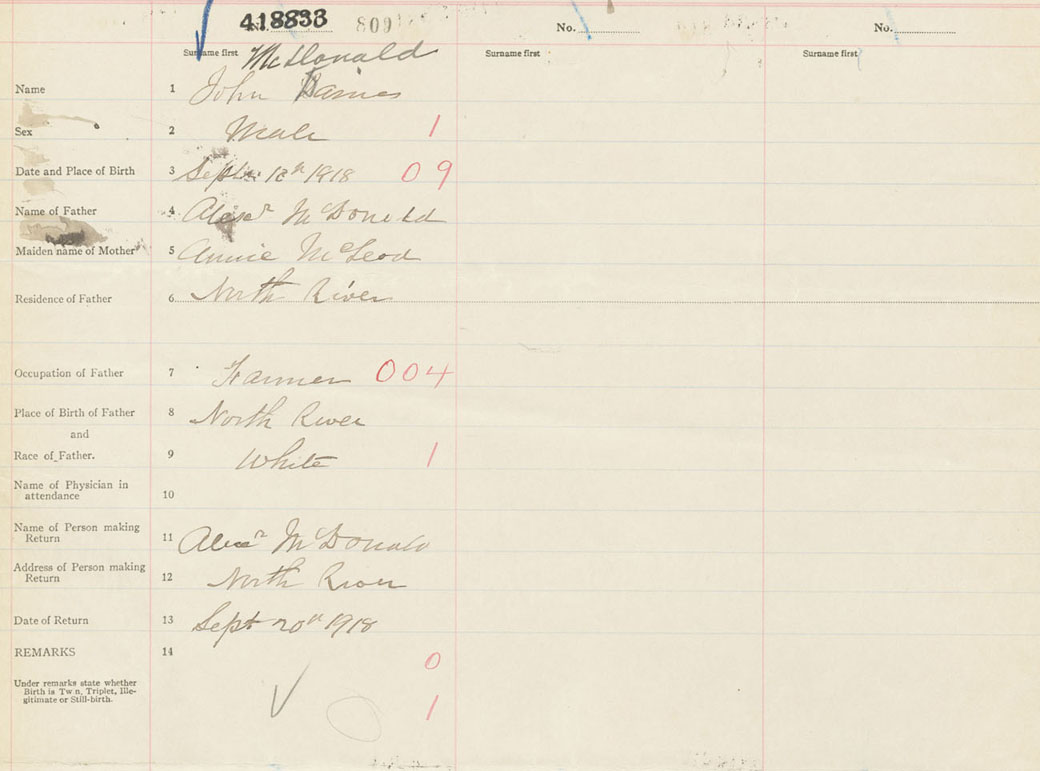 418833 809
No. No. No.
Surname first McDonald Surname first Surname first
Name 1 John James
Sex 2 Male 1
Date and Place of Birth 3 Sept 12th 1918 09
Name of Father 4 Alexr McDonald
Maiden name of Mother 5 Annie McLeod
Residence of Father 6 North River
Occupation of Father 7 Farmer 004
Place of Birth of Father 8 North River
and
Race of Father. 9 White 1
Name of Physician in
attendance 10
Name of Person making
Return 11 Alexr McDonald
Address of Person making
Return 12 North River
Date of Return 13 Sept 20th 1918
REMARKS 14
0
Under remarks state whether
Birth is Twin, Triplet, Ille-
gitimate or Still-birth.
1